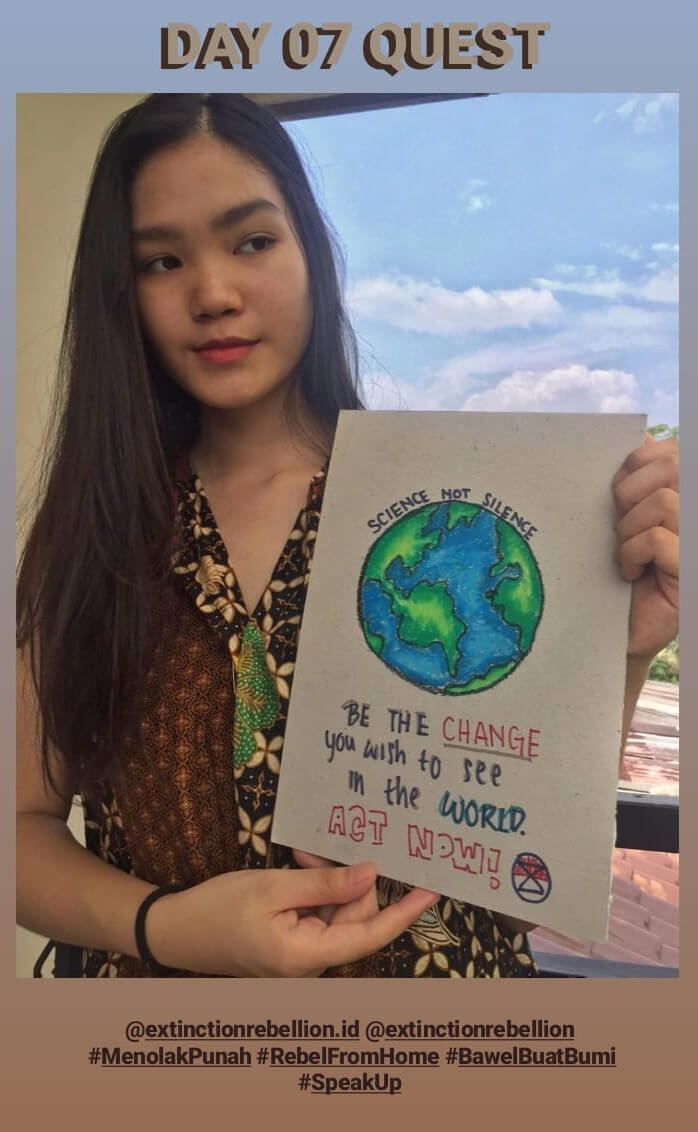 DAY 07 QUEST
SCIENCE NOT SILENCE
BE THE CHANGE
you wish to see
in the WORLD.
ACT NOW!
@extinctionrebellion.id @extinctionrebellion
#MenolakPunah #RebelFromHome #BawelBuatBumi
#SpeakUp